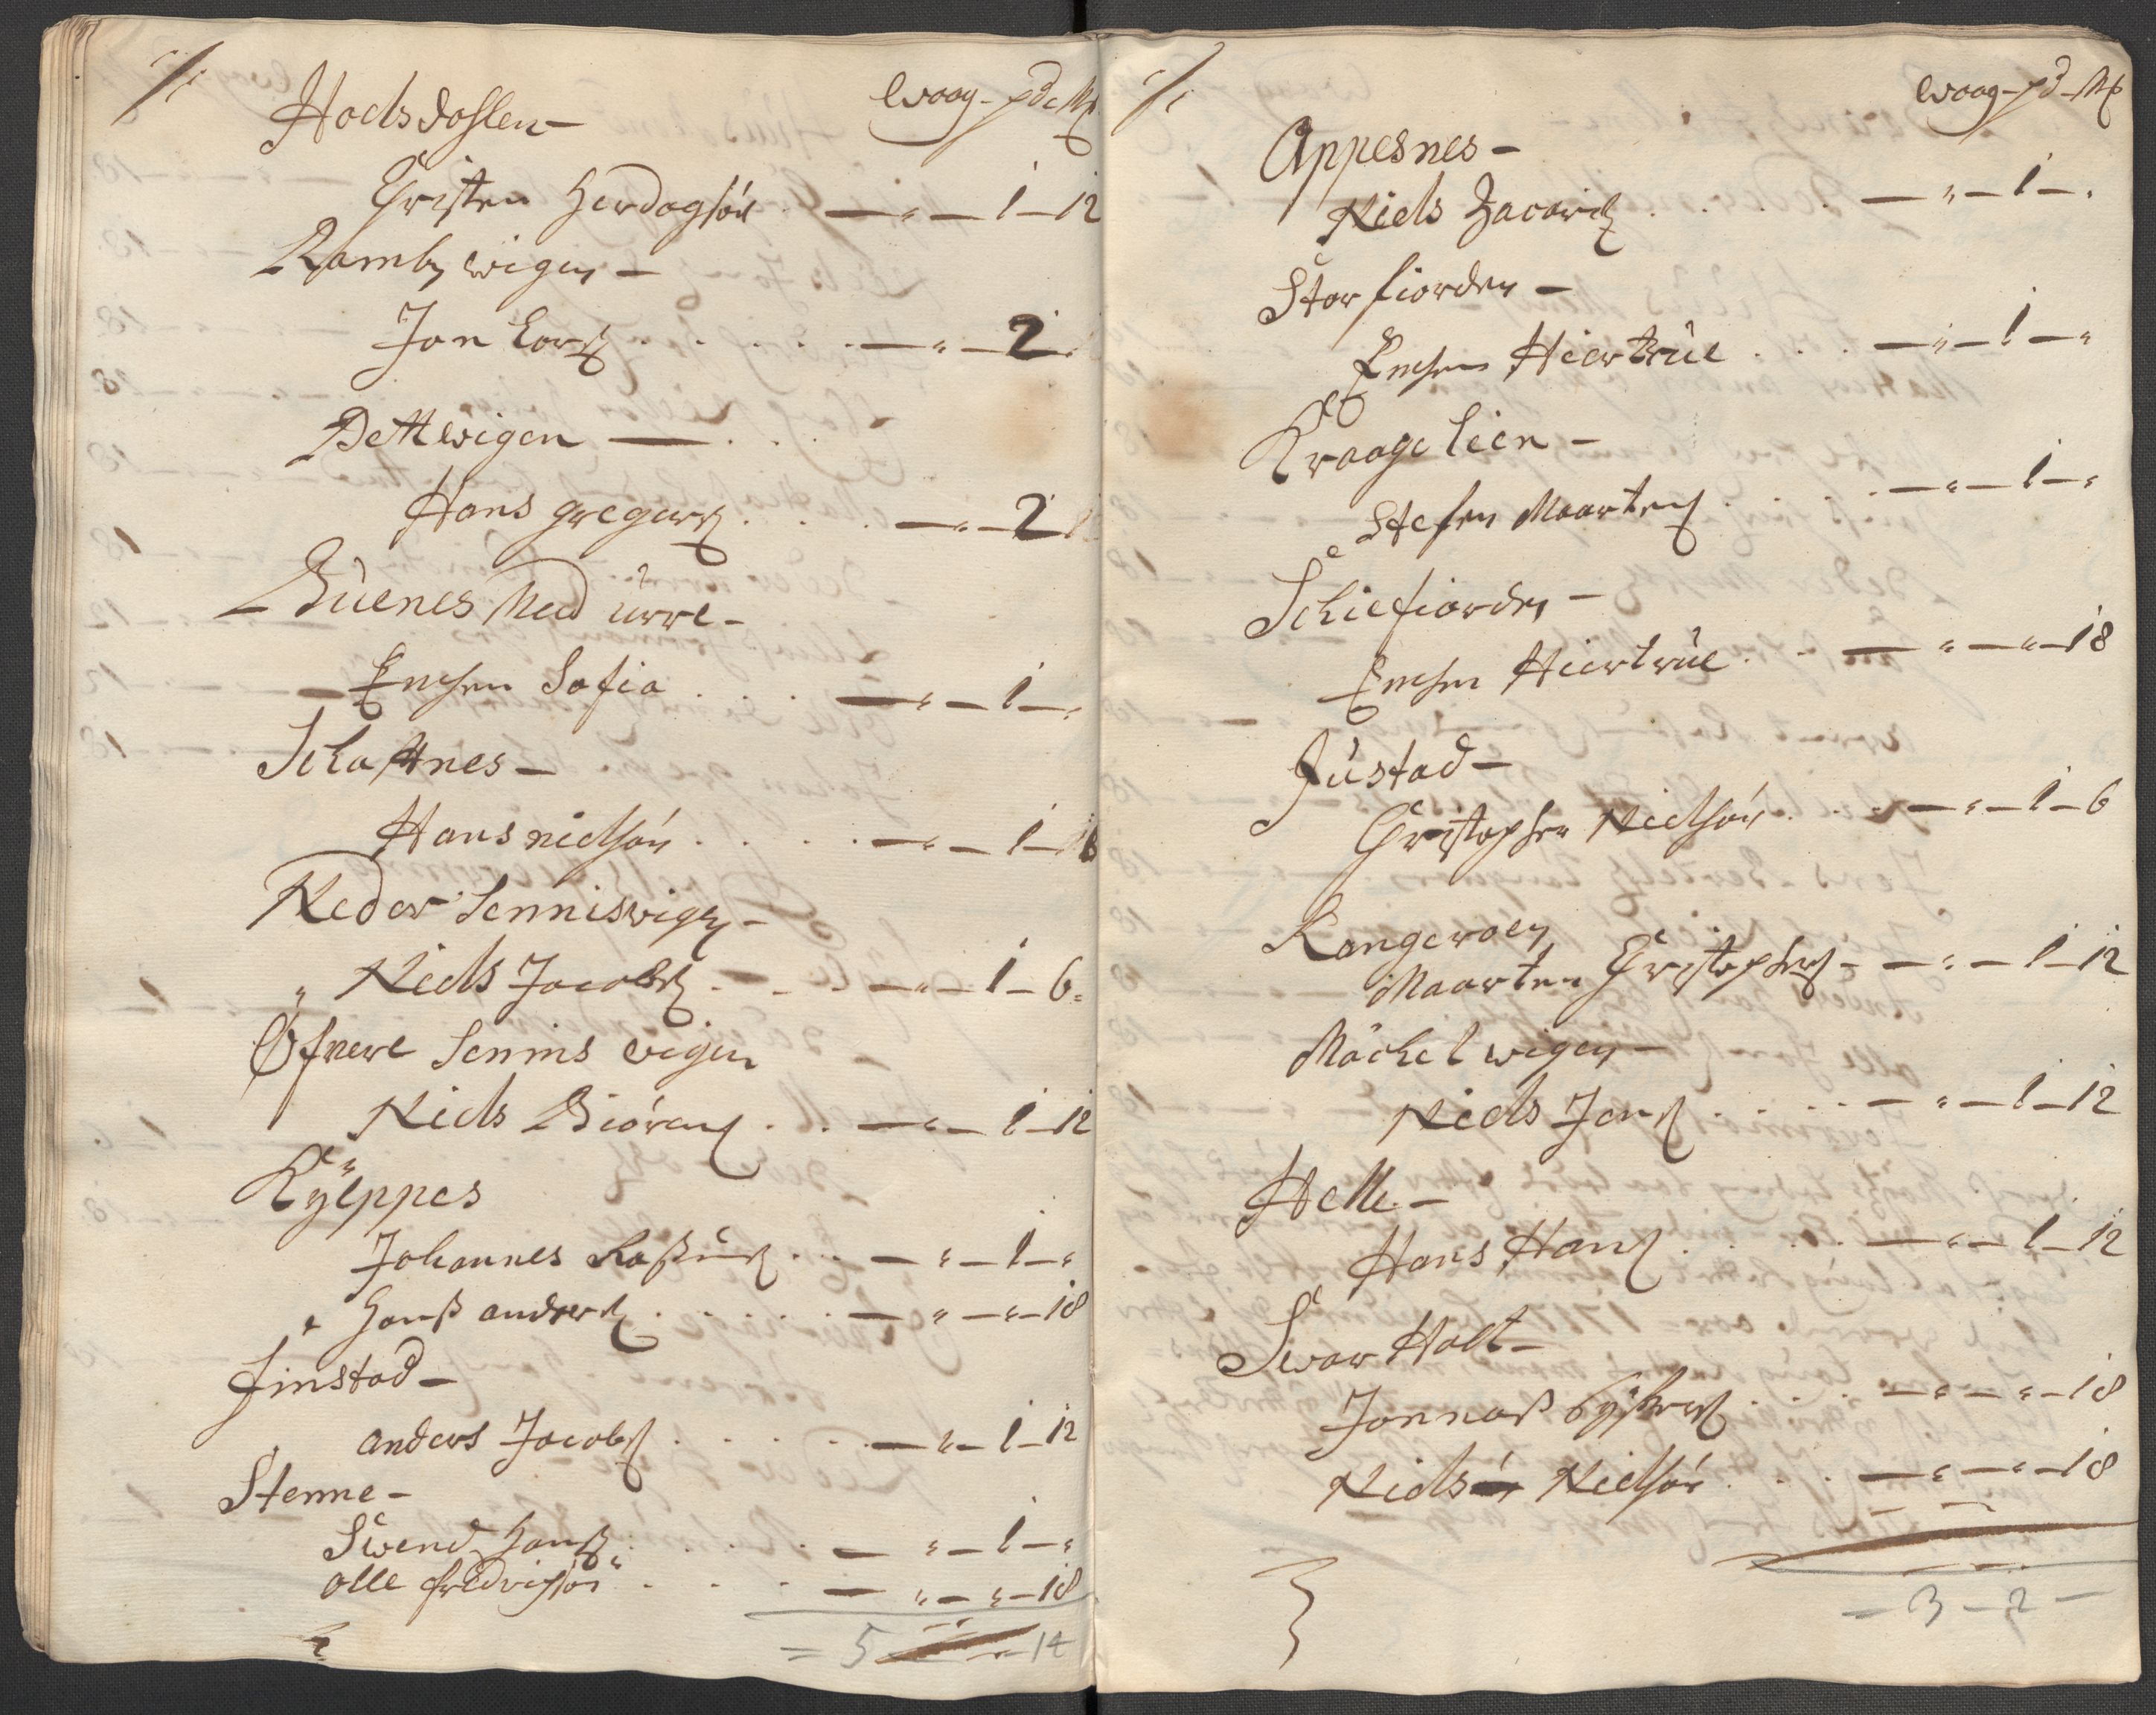 ./.
Woog - pd - Mk
Hodsdahlen -
Christen Herdagsøn . — " — 1 — 12
Rambswigen -
Jon Lars . . . . . — " — 2 -
Pettwigen — . . .
Hans gregers . . . — " — 2
Buenes Med urre -
Enchen Sofia . . . . — " — 1 — "
Schaftnes -
Hans nielsøn . . . . . — " — 1 — 6
Neder Senniswigen -
" Niels Jacobs . - . . — " — 1 — 6 -
Øfuere Sennis vigen
Niels Biørens . . — " — 1 — 12
Kylppes
Johannes Rasmus . . . — " — 1 — "
" Hans anders . . . . . — " — " — 18
finstad -
anders Jacobs . . . . . — " — 1 — 12
Stenne -
Swend Hans . . . . — " — 1 — "
olle fredrichsøn . . . — " — " — 18
= 5 — 14
./.
Woog - pd - Mk
Appesnes -
Niels Zacaris . . . . . — " — 1 — "
Storfiorden -
Enchen Hiertrue . . . — " — 1 — "
Kraagelien -
Stefen Maartens . . . . — " — 1 — "
Schiefiorden -
Enchen Hiertrue . . — " — " — 18
Justad -
Christopher Nielsøn . . . — " — 1 — 6
Rangeroen
Maarten Christophers - — " — 1 — 12
Møchelwigen -
Niels Jens . . . . . — " — 1 — 12
Helle -
Hans Hans . . . . . — " — 1 — 12
Swar Holt -
Jonnas . . . — " — " — 18
Niels Nielsøn . . . — " — " — 18
- 3 - 2 -